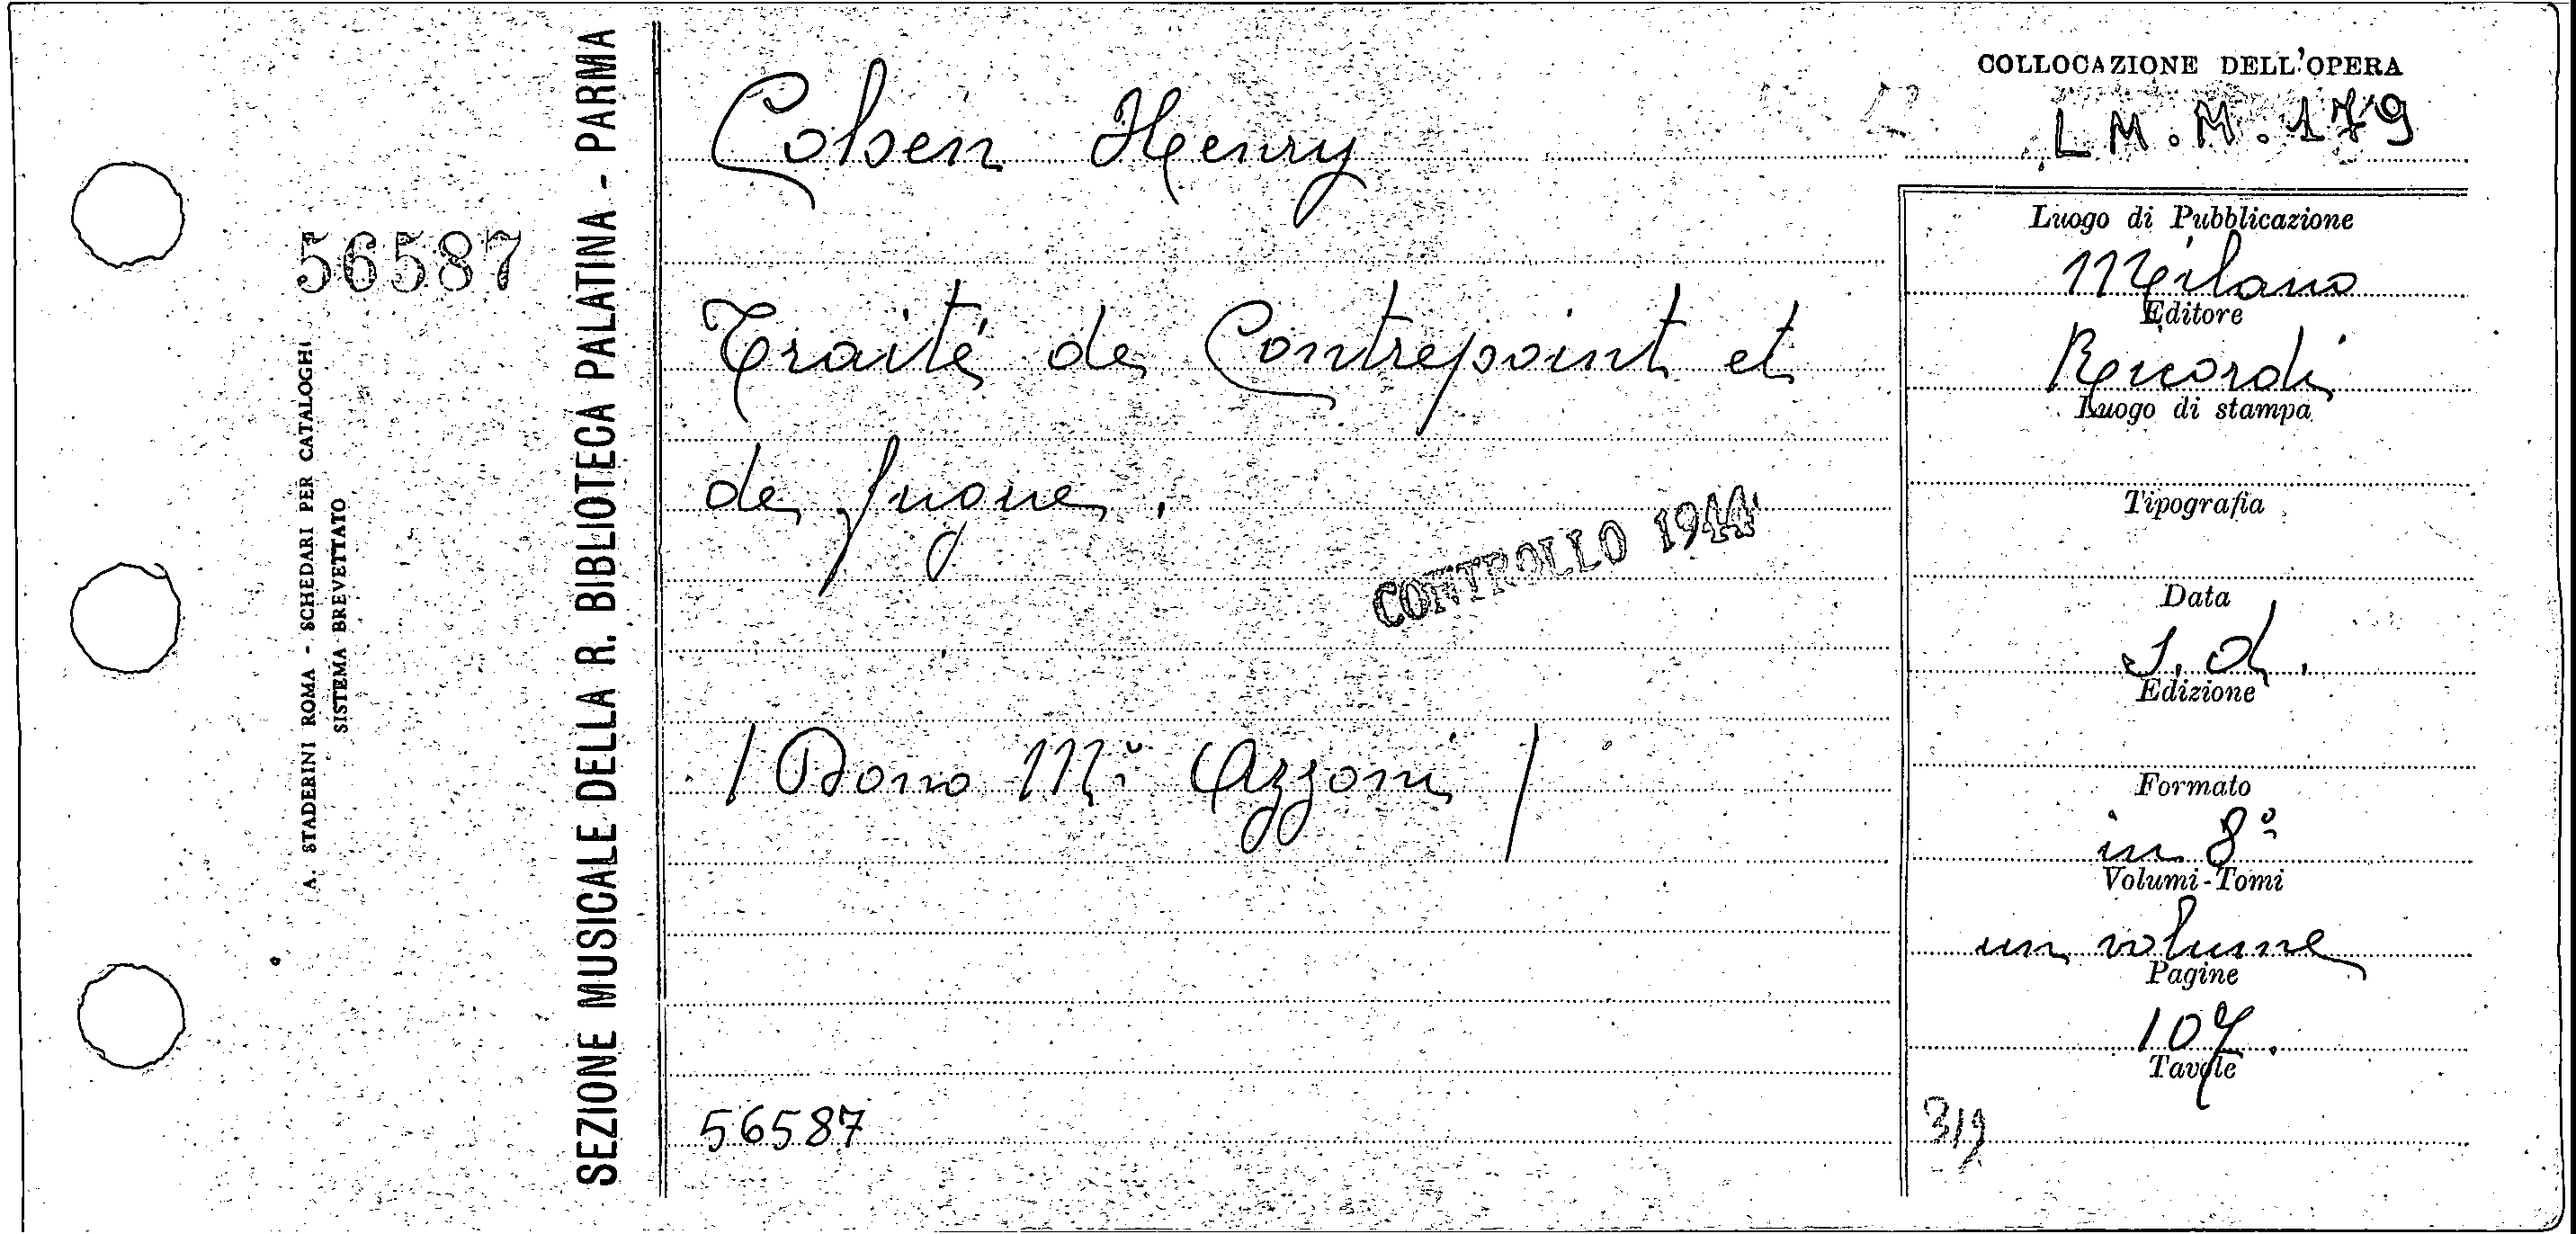 COLLOCAZIONE DELL'OPERA
L M. M. 179
Cohen Henry
Traité de Contrepoint et
de fugue.
CONTROLLO 1944
/ Dono M° Azzoni /
56587
Luogo di Pubblicazione
Milano
Editore
Ricordi
Luogo di stampa
Tipografia
Data
s. d.
Edizione
Formato
in 8°
Volumi-Tomi
un volume
Pagine
107.
Tavole
56587
A. STADERINI ROMA - SCHEDARI PER CATALOGHI
SISTEMA BREVETTATO
SEZIONE MUSICALE DELLA R. BIBLIOTECA PALATINA - PARMA